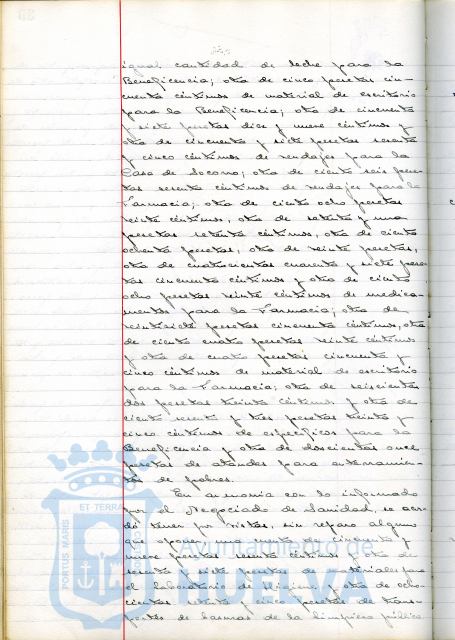 igual cantidad de leche para la
Beneficencia; otra de cinco pesetas cin-
cuenta céntimos de material de escritorio
para la Beneficencia; otra de cincuenta
y siete pesetas diez y nueve céntimos y
otra de cincuenta y siete pesetas sesenta
y cinco céntimos de vendajes para la
Casa de Socorro; otra de ciento seis pese-
tas sesenta céntimos de vendajes para la
Farmacia; otra de ciento ocho pesetas
veinte céntimos, otra de setenta y una
pesetas setenta céntimos, otra de ciento
ochenta pesetas, otra de veinte pesetas,
otra de cuatrocientas cuarenta y siete pese-
tas cincuenta céntimos y otra de ciento
ocho pesetas veinte céntimos de medica-
mentos para la Farmacia; otra de
veintisiete pesetas cincuenta céntimos, otra
de ciento cuatro pesetas veinte céntimos
y otra de cuatro pesetas cincuenta y
cinco céntimos de material de escritorio
para la Farmacia; otra de seiscientas
dos pesetas treinta céntimos y otra de
ciento sesenta y tres pesetas treinta y
cinco céntimos de específicos para la
Beneficencia y otra de doscientas once
pesetas de ataudes para enterramien-
tos de pobres.
En armonia con lo informado
por el Negociado de Sanidad, se acor-
dó tener por vistas, sin reparo alguno
que oponer, una cuenta de cincuenta y
nueve pesetas veinte céntimos y otra de
sesenta y siete pesetas de materiales para
el Laboratorio de Higiene y otra de ocho-
cientas y cinco pesetas de trans-
portes de basuras de la limpieza pública
PORTUS MARIS
ET TERRAE
CUSTODIA
Ayuntamiento de
HUELVA